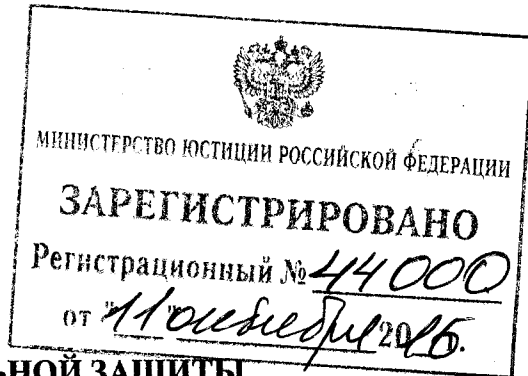 МИНИСТЕРСТВО ЮСТИЦИИ РОССИЙСКОЙ ФЕДЕРАЦИИ
ЗАРЕГИСТРИРОВАНО
Регистрационный № 44000
от "11" октября 2016.
ЬНОЙ ЗАЩИТЫ